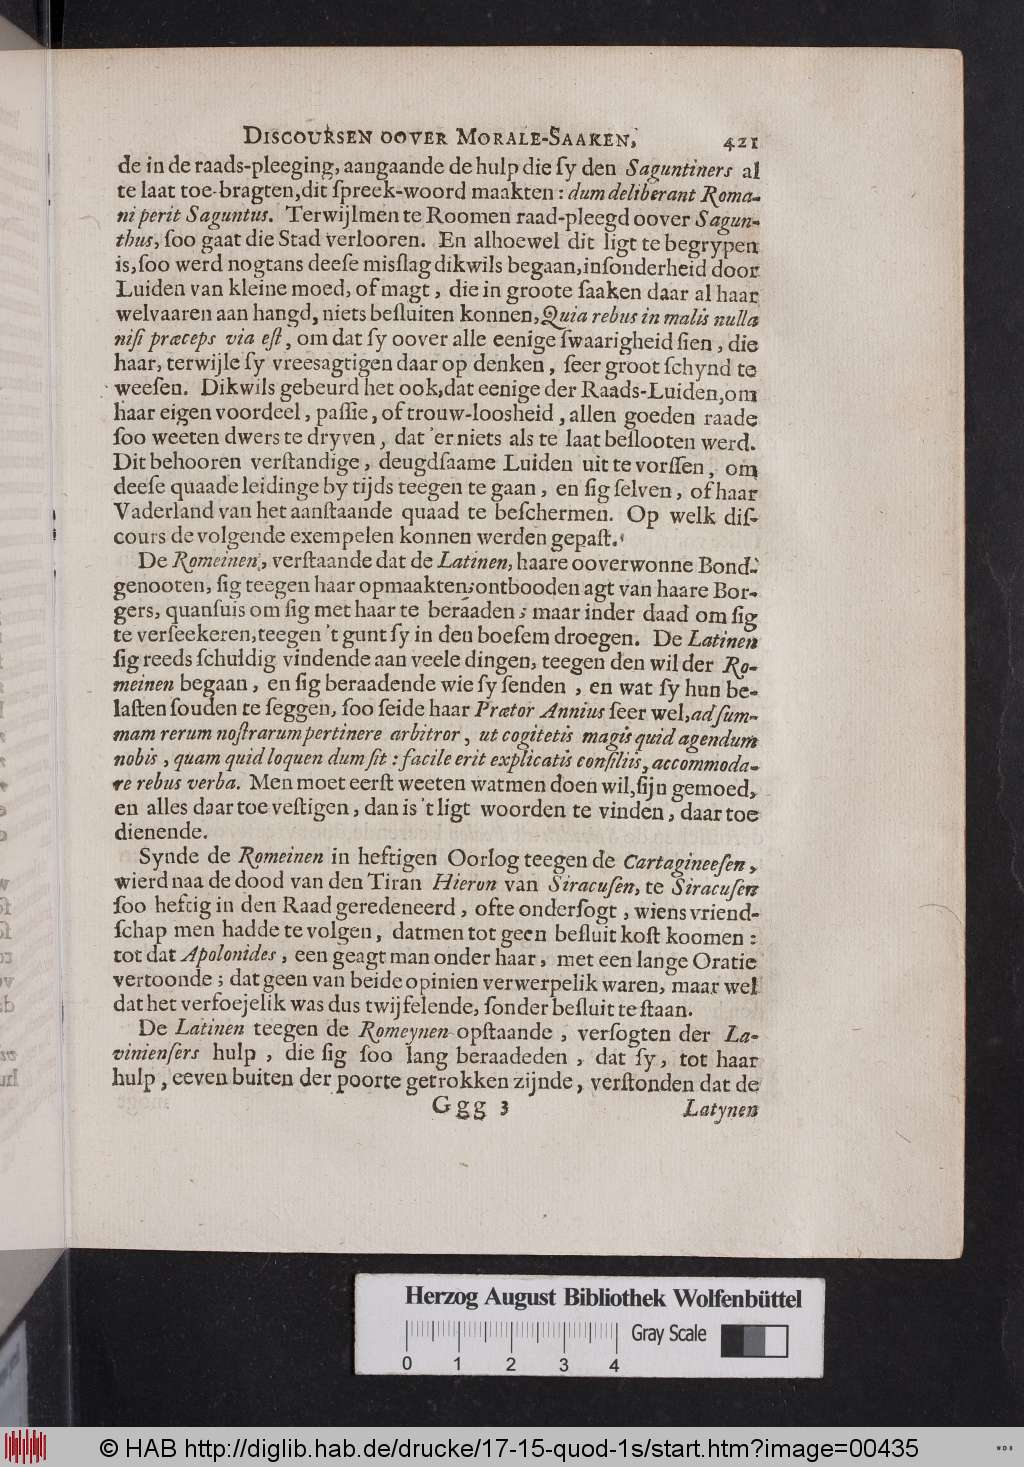 Discoursen oover Morale-Saaken, 421
de in de raads-pleeging, aangaande de hulp die ſy den Saguntiners al
te laat toe-bragten, dit ſpreek-woord maakten: dum deliberant Roma-
ni perit Saguntus. Terwijlmen te Roomen raad-pleegd oover Sagun-
thus, ſoo gaat die Stad verlooren. En alhoewel dit ligt te begrypen
is, ſoo werd nogtans deeſe misſlag dikwils begaan, inſonderheid door
Luiden van kleine moed, of magt, die in groote ſaaken daar al haar
welvaaren aan hangd, niets beſluiten konnen, Quia rebus in malis nulla
niſi præceps via eſt, om dat ſy oover alle eenige ſwaarigheid ſien, die
haar, terwijle ſy vreesagtigen daar op denken, ſeer groot ſchynd te
weeſen. Dikwils gebeurd het ook, dat eenige der Raads-Luiden, om
haar eigen voordeel, paſſie, of trouw-loosheid, allen goeden raade
ſoo weeten dwers te dryven, dat 'er niets als te laat beſlooten werd.
Dit behooren verſtandige, deugdſaame Luiden uit te vorſſen, om
deeſe quaade leidinge by tijds teegen te gaan, en ſig ſelven, of haar
Vaderland van het aanſtaande quaad te beſchermen. Op welk diſ-
cours de volgende exempelen konnen werden gepaſt.
De Romeinen, verſtaande dat de Latinen, haare ooverwonne Bond-
genooten, ſig teegen haar opmaakten, ontbooden agt van haare Bor-
gers, quanſuis om ſig met haar te beraaden; maar inder daad om ſig
te verſeekeren, teegen 't gunt ſy in den boeſem droegen. De Latinen
ſig reeds ſchuldig vindende aan veele dingen, teegen den wil der Ro-
meinen begaan, en ſig beraadende wie ſy ſenden, en wat ſy hun be-
laſten ſouden te ſeggen, ſoo ſeide haar Prætor Annius ſeer wel, ad ſum-
mam rerum noſtrarum pertinere arbitror, ut cogitetis magis quid agendum
nobis, quam quid loquen dum ſit: facile erit explicatis conſiliis, accommoda-
re rebus verba. Men moet eerſt weeten watmen doen wil, ſijn gemoed,
en alles daar toe veſtigen, dan is 't ligt woorden te vinden, daar toe
dienende.
Synde de Romeinen in heftigen Oorlog teegen de Cartagineeſen,
wierd naa de dood van den Tiran Hieron van Siracuſen, te Siracuſen
ſoo heftig in den Raad geredeneerd, ofte onderſogt, wiens vriend-
ſchap men hadde te volgen, datmen tot geen beſluit koſt koomen:
tot dat Apolonides, een geagt man onder haar, met een lange Oratie
vertoonde; dat geen van beide opinien verwerpelik waren, maar wel
dat het verfoejelik was dus twijfelende, ſonder beſluit te ſtaan.
De Latinen teegen de Romeynen opſtaande, verſogten der La-
vinienſers hulp, die ſig ſoo lang beraadeden, dat ſy, tot haar
hulp, eeven buiten der poorte getrokken zijnde, verſtonden dat de
Ggg 3 Latynen
Herzog August Bibliothek Wolfenbüttel
Gray Scale
0 1 2 3 4
© HAB http://diglib.hab.de/drucke/17-15-quod-1s/start.htm?image=00435